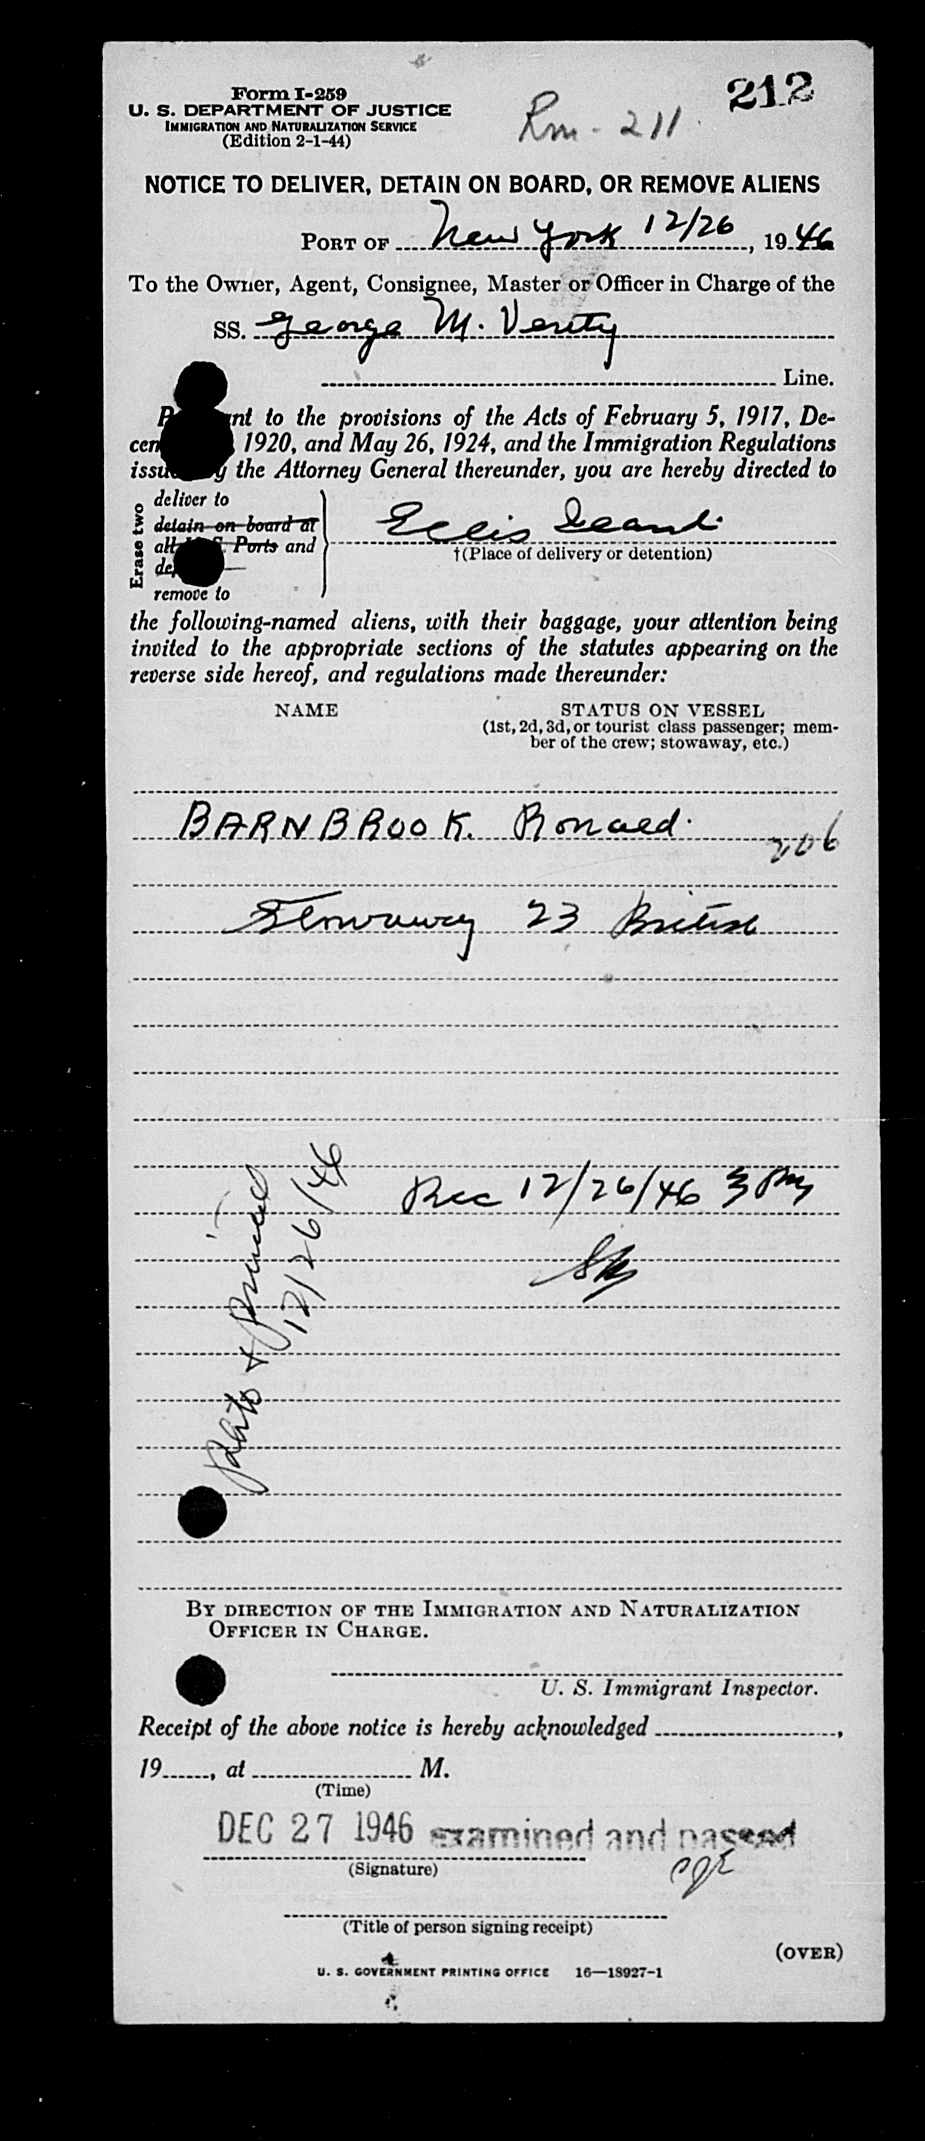 Form I-259
212
U. S. DEPARTMENT OF JUSTICE
IMMIGRATION AND NATURALIZATION SERVICE
Rm - 211
(Edition 2-1-44)
NOTICE TO DELIVER, DETAIN ON BOARD, OR REMOVE ALIENS
PORT OF New York 12/26, 1946
To the Owner, Agent, Consignee, Master or Officer in Charge of the
SS. George M. Verity
Line.
nt to the provisions of the Acts of February 5, 1917, De-
cem 1920, and May 26, 1924, and the Immigration Regulations
issu y the Attorney General thereunder, you are hereby directed to
Erase two
deliver to
detain on board at
all U. S. Ports and
de
remove to
Ellis Island
†(Place of delivery or detention)
the following-named aliens, with their baggage, your attention being
invited to the appropriate sections of the statutes appearing on the
reverse side hereof, and regulations made thereunder:
NAME STATUS ON VESSEL
(1st, 2d, 3d, or tourist class passenger; mem-
ber of the crew; stowaway, etc.)
BARNBROOK. Ronald.
206
Stowaway 23 British
Rec 12/26/46 3 PM
photo & printed
12/26/46
BY DIRECTION OF THE IMMIGRATION AND NATURALIZATION
OFFICER IN CHARGE.
U. S. Immigrant Inspector.
Receipt of the above notice is hereby acknowledged ,
19 , at M.
(Time)
DEC 27 1946 examined and passed
(Signature)
(Title of person signing receipt)
(OVER)
U. S. GOVERNMENT PRINTING OFFICE 16—18927-1